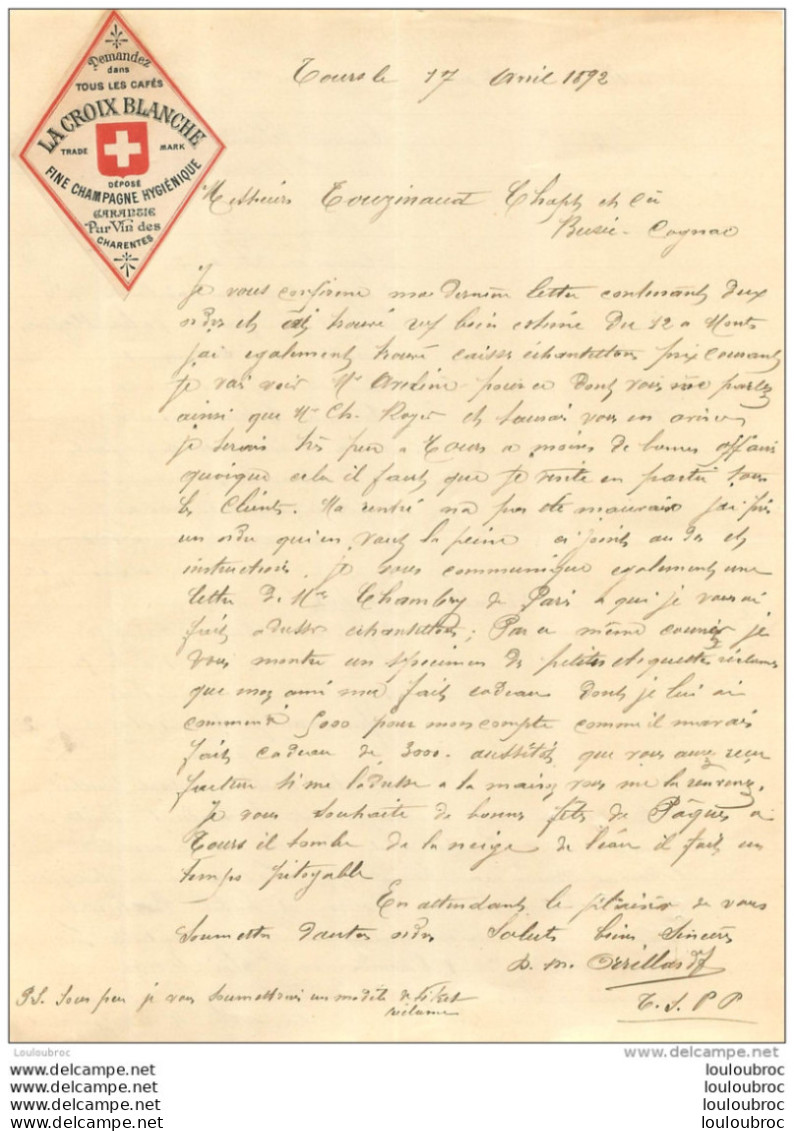 Demandez
dans
TOUS LES CAFÉS
LA CROIX BLANCHE
TRADE MARK
DÉPOSÉ
FINE CHAMPAGNE HYGIÉNIQUE
GARANTIE
Pur Vin des
CHARENTES
Tours le 17 Avril 1892
Messieurs Touzinaud Chapt et Cie
Cognac
Je vous confirme ma dernière lettre contenant deux
ordres et trouvé bien du 12 a
j'ai egalement trouvé caisse échantillons prix courant
Je vais voir Mr pour ce dont vous me parlez
ainsi que Mr Ch. Roger et
je très peu a Tours a moins de bonnes affaires
quoique cela il faut que je visite en partie tous
les Clients. Ma rentré na pas été mauvaise j'ai pris
un ordre qui en vaut la peine ci joint ordre et
instructions je vous communique egalement une
lettre de Mr Chambry de Paris a qui je vous ai
fait adresser échantillons; Par ce même courrier je
vous montre un specimen de petites etiquettes réclames
que mon ami ma fait cadeau dont je lui ai
commandé 5000 pour mon compte comme il mavait
fait cadeau de 3000. aussitôt que vous aurez reçu
facture si me ladresse a la maison vous me la renverrez.
Je vous souhaite de bonnes fêtes de Pâques a
Tours il tombe de la neige de l'eau il fait un
temps pitoyable
En attendant le plaisir de vous
soumettre dautres ordres Saluts bien Sincères
T. S. P P
PS. Sous peu je vous soumettrai un modèle de ticket
réclame
Louloubroc
delcampe.net
louloubroc
louloubroc
louloubroc
louloubroc